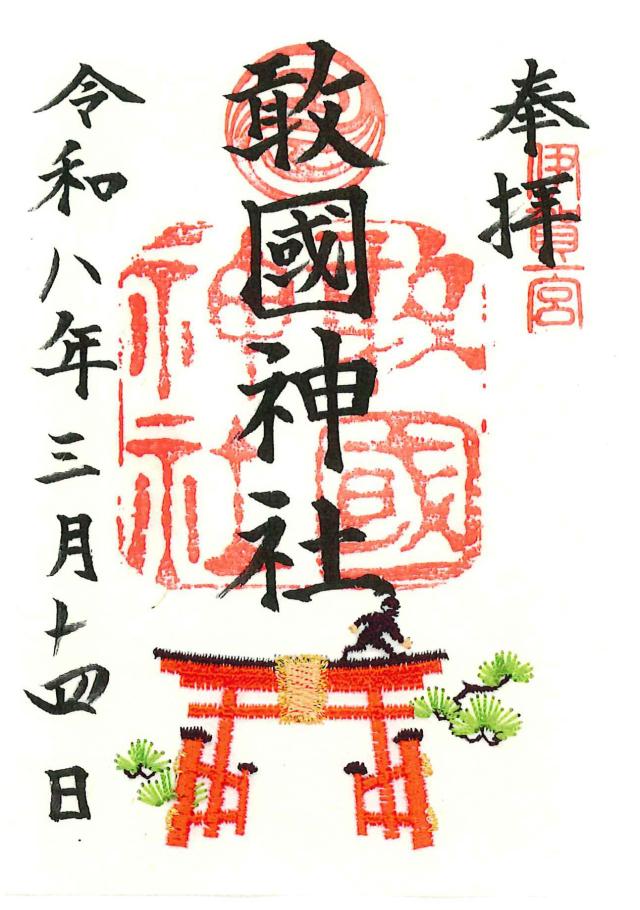 奉拝
伊賀一宮
敢國神社
敢國神社
令和八年三月十四日